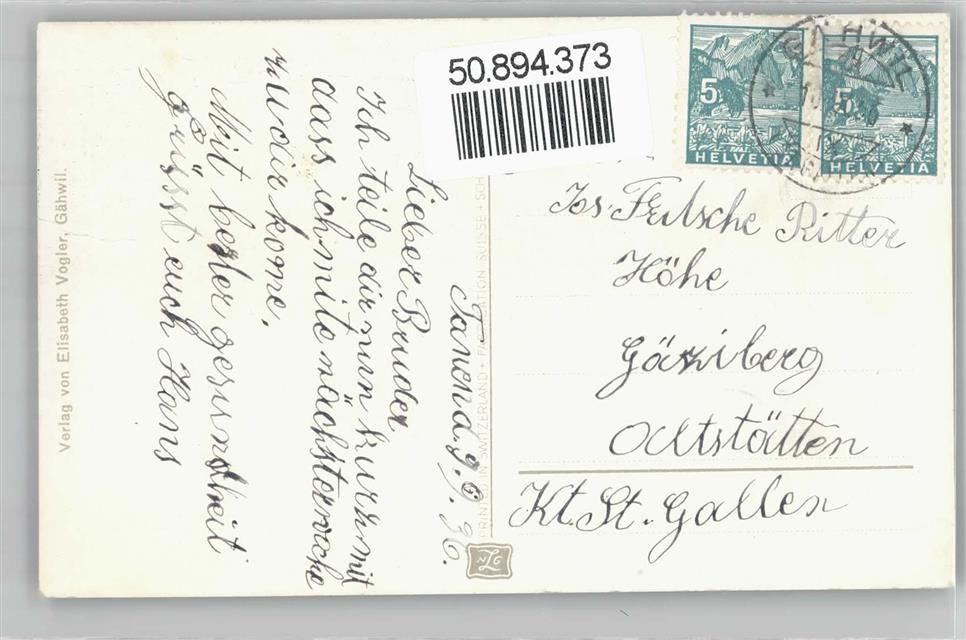 50.894.373
5
HELVETIA
5
HELVETIA
GÄHWIL
Tanend. 9. 9. 36.
Lieber Bruder
Ich teile dir nun kurz mit
dass ich mite nächsterwoche
zu dir kome.
Mit bester gesundheit
grüsst euch Hans
Jos. Fritsche Ritter
Höhe
Gäziberg
Altstätten
Kt. St. Gallen
Verlag von Elisabeth Vogler, Gähwil.
PRINTED IN SWITZERLAND + FABRICATION SUISSE + SCH